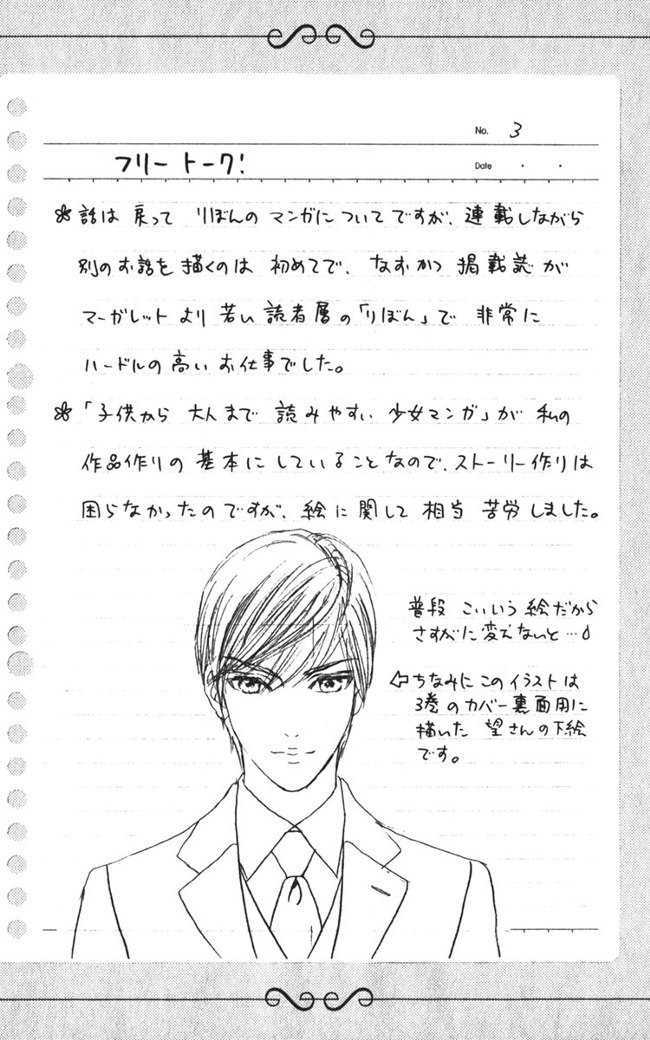 No. 3
フリートーク!
Date ・ ・
話は戻って りぼんのマンガについてですが、連載しながら
別のお話を描くのは 初めてで、なおかつ 掲載誌が
マーガレットより 若い読者層の「りぼん」で 非常に
ハードルの高いお仕事でした。
「子供から 大人まで 読みやすい 少女マンガ」が 私の
作品作りの 基本にしていることなので、ストーリー作りは
困らなかったのですが、絵に関して 相当 苦労しました。
普段 こいいう絵だから
さすがに変えないと…
⇦ちなみにこのイラストは
3巻のカバー裏面用に
描いた 望さんの下絵
です。